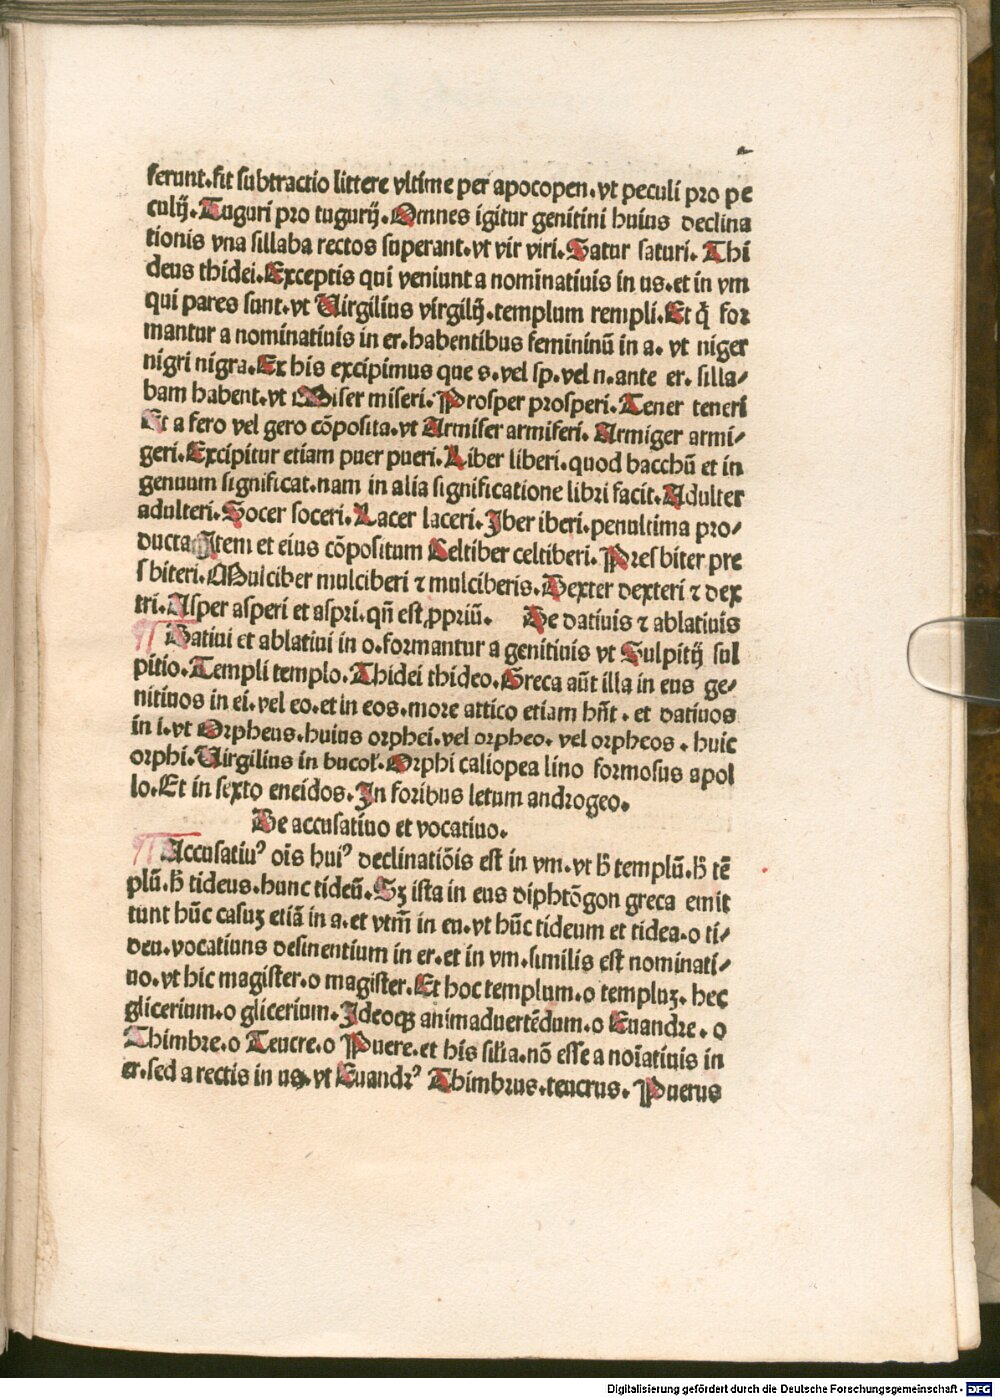 ferunt.fit subtractio littere vltime per apocopen.vt peculi pro pe
culij.Tuguri pro tugurij.Omnes igitur genitini huius declina
tionis vna sillaba rectos superant.vt vir viri.Satur saturi. Thi
deus thidei.Exceptis qui veniunt a nominatiuis in us.et in vm
qui pares sunt.vt Uirgilius virgilij.templum rempli.Et q̄ for
mantur a nominatiuis in er.habentibus femininū in a. vt niger
nigri nigra.Ex his excipimus que s.vel sp.vel n.ante er. silla/
bam habent.vt Miser miseri.Prosper prosperi.Tener teneri
Et a fero vel gero cōposita.vt Armifer armiferi. Armiger armi/
geri.Excipitur etiam puer pueri.Liber liberi.quod bacchū et in
genuum significat.nam in alia significatione libri facit.Adulter
adulteri.Socer soceri.Lacer laceri.Iber iberi.penultima pro/
ducta.Item et eius cōpositum Celtiber celtiberi.Presbiter pre
sbiteri.Mulciber mulciberi ⁊ mulciberis.Dexter dexteri ⁊ dex
tri.Asper asperi et aspri.qn̄ est ꝓpriū. De datiuis ⁊ ablatiuis
Datiui et ablatiui in o.formantur a genitiuis vt Sulpitij sul
pitio.Templi templo.Thidei thideo.Greca aūt illa in eus ge/
nitiuos in ei.vel eo.et in eos.more attico etiam hn̄t . et datiuos
in i.vt Orpheus.huius orphei.vel orpheo. vel orpheos . huic
orphi.Uirgilius in bucol̕.Orphi caliopea lino formosus apol
lo.Et in sexto eneidos.In foribus letum androgeo.
De accusatiuo et vocatiuo.
Accusatiuꝰ oīs huiꝰ declinatiōis est in vm.vt h̄ templū.h̄ tē
plū.h̄ tideus.hunc tideū.Sꝫ ista in eus diphtōgon greca emit
tunt hūc casuꝫ etiā in a.et vtm̄ in en.vt hūc tideum et tidea.o ti/
deu.vocatiuns desinentium in er.et in vm.similis est nominati/
uo.vt hic magister.o magister.Et hoc templum.o templuꝫ. hec
glicerium.o glicerium.Ideoqꝫ animaduertēdum.o Euandre . o
Thimbre.o Teucre.o Puere.et his sil̕ia.nō esse a noīatiuis in
er.sed a rectis in us.vt Euandrꝰ Thimbrus.teucrus. Puerus
Digitalisierung gefördert durch die Deutsche Forschungsgemeinschaft - DFG